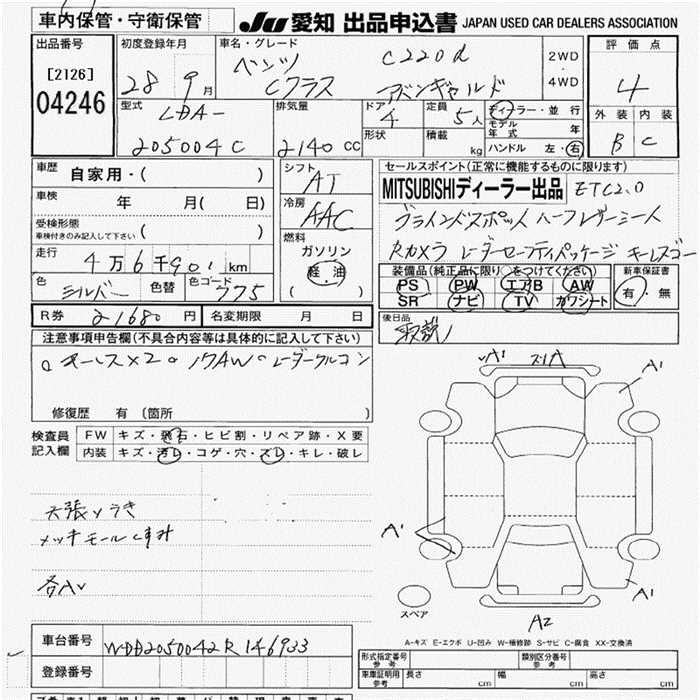 車内保管・守衛保管
JU 愛知 出品申込書 JAPAN USED CAR DEALERS ASSOCIATION
出品番号
[2126]
04246
初度登録年月
28年9月
車名・グレード
ベンツ C220d
Cクラス アバンギャルド
2WD
・
4WD
評価点
4
外装 内装
B C
型式
LDA-
205004C
排気量
2140 CC
ドア
4
形状
定員
5人
積載
kg
ディーラー・並行
モデル年式 年
ハンドル 左・右
車歴
自家用・( )
車検
年 月( 日)
受検形態
車検付きのみ記入して下さい ( )
走行
4万6千901 km
色
シルバー
色替
色コード
775
シフト
AT
冷房
AAC
燃料
ガソリン
軽・油
( )
セールスポイント(正常に機能するものに限ります)
MITSUBISHIディーラー出品 ETC2.0
ブラインドスポット ハーフレザーシート
Rカメラ レーダーセーフティパッケージ キーレスゴー
装備品(純正品に限り○をつけてください)
PS PW エアB AW
SR ナビ TV カワシート
新車保証書
有・無
後日品
取説
R券 21680円
名変期限 月 日
注意事項申告欄(不具合内容等は具体的に記入して下さい)
キーレス×2 17AW レーダークルコン
修復歴 有(箇所 )
検査員
記入欄
FW キズ・飛石・ヒビ割・リペア跡・X要
内装 キズ・汚レ・コゲ・穴・スレ・キレ・破レ
天張りうき
メッキモールくすみ
各AU
A1
スリA
A1
A1
A1
A2
スペア
A-キズ E-エクボ U-凹み W-補修跡 S-サビ C-腐食 XX-交換済
車台番号 WDD2050042R146933
登録番号
形式指定番号
参考
類別区分番号
参考
車庫証明用
参考
長さ cm 幅 cm 高さ cm